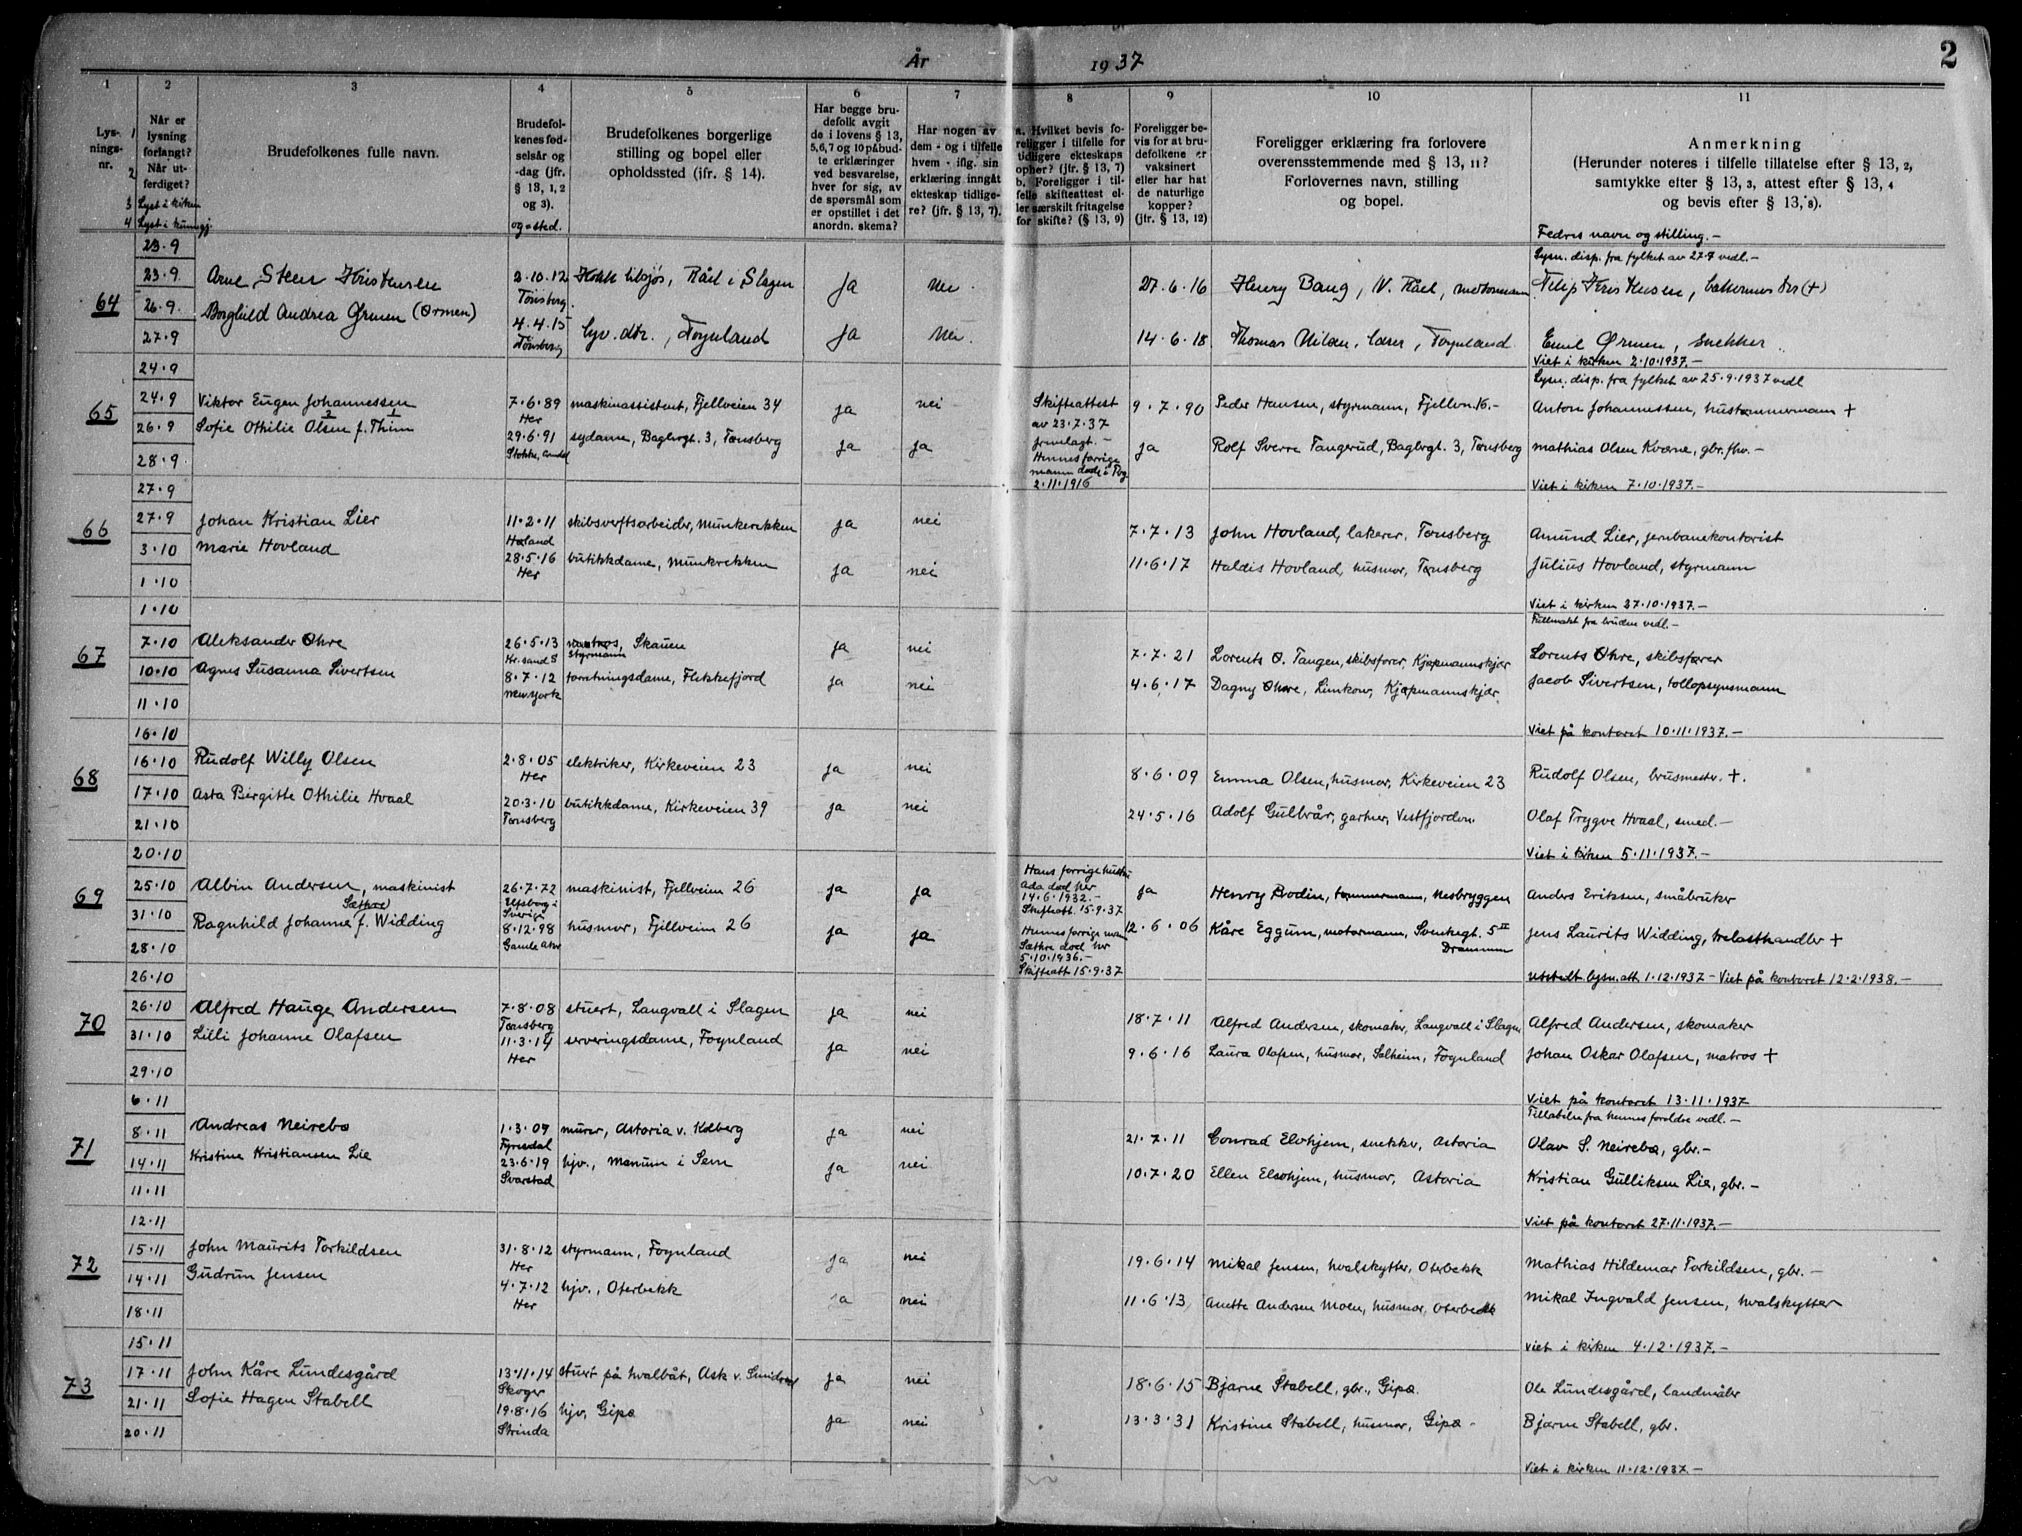 År 1937
2
1 2 3 4 5 6 7 8 9 10 11
Lysningsnr.
1
2
3
4
Når er lysning forlangt? Når utferdiget?
Lyst i kirken
Lyst i kunngj.
Brudefolkenes fulle navn.
Brudefolkenes fødselsår og -dag (jfr. § 13, 1, 2 og 3).
og = sted.
Brudefolkenes borgerlige stilling og bopel eller opholdssted (jfr. § 14).
Har begge brudefolk avgit de i lovens § 13, 5, 6, 7 og 10 påbudte erklæringer ved besvarelse, hver for sig, av de spørsmål som er opstillet i det anordn. skema?
Har nogen av dem - og i tilfelle hvem - iflg. sin erklæring inngåt ekteskap tidligere? (jfr. § 13, 7).
a. Hvilket bevis foreligger i tilfelle for tidligere ekteskaps ophør? (jfr. § 13, 7)
b. Foreligger i tilfelle skifteattest eller særskilt fritagelse for skifte? (§ 13, 9)
Foreligger bevis for at brudefolkene er vaksinert eller har hat de naturlige kopper? (jfr. § 13, 12)
Foreligger erklæring fra forlovere overensstemmende med § 13, 11? Forlovernes navn, stilling og bopel.
Anmerkning
(Herunder noteres i tilfelle tillatelse efter § 13, 2, samtykke efter § 13, 3, attest efter § 13, 4 og bevis efter § 13, 8).
Fedres navn og stilling. -
64
23.9
23.9
26.9.
27.9
Arne Steen Kristensen 2.10.12 Tönsberg Råel i Slagen ja nei 27.6.16 Henry Bang, N. Råel, motormann Filip Kristensen, (+)
Lysn. disp. fra fylket av 27.9 vedl. -
Borghild Andrea Ormen (Ørmen) 4.4.15 Tönsberg Föynland ja nei. 14.6.18 Thomas Nilsen, lærer, Föynland Emil Ørmen, snekker.
Viet i kirken 2.10.1937. -
65
24.9
24.9
26.9
28.9
Viktor Eugen Johannessen 7.6.89 Her maskinassistent, Fjellveien 34 ja nei 9.7.90 Peder Hansen, styrmann, Fjellvn. 16. -
Lysn. disp. fra fylket av 25.9.1937 vedl
Anton Johannessen, hustømmermann +
Sofie Othilie Olsen f. Thim 29.6.91 Stokke, sydame, Baglergt. 3, Tønsberg ja ja
Skifteattest av 23.7.37 fremlagt. - Hennes forrige mann døde i Tbg 2.11.1916
ja Rolf Sverre Tangerud, Baglergt. 3, Tønsberg mathias Olsen Kværne, gbr. fhv. -
Viet i kirken 7.10.1937. -
66
27.9
27.9
3.10
1.10
Johan Kristian Lier 11.2.11 skibsverftsarbeider, Munkerekken ja nei 7.7.13 John Hovland, lakerer, Tønsberg Amund Lier, jernbanekontorist
marie Hovland 28.5.16 Her butikkdame, Munkrekken ja nei 11.6.17 Haldis Hovland, husmor, Tønsberg Julius Hovland, styrmann
Viet i kirken 27.10.1937. -
67
1.10
7.10
10.10
11.10
Aleksander Ohre 26.5.13 Kr.sand S matros, Skauen styrmann ja nei 7.7.21 Lorents O. Tangen, skibsfører, Kjøpmannskjær
Fullmakt fra bruden vedl. -
Lorents Ohre, skibsfører
Agnes Susanna Sivertsen 8.7.12 New York forretningsdame, Flekkefjord ja nei 4.6.17 Dagny Ohre, Kjøpmannskjær Jacob Sivertsen, tollopsynsmann
Viet på kontoret 10.11.1937. -
68
16.10
16.10
17.10
21.10
Rudolf Willy Olsen 2.8.05 Her elektriker, Kirkeveien 23 ja nei 8.6.09 Emma Olsen, husmor, Kirkeveien 23 Rudolf Olsen, brusmester. +.
Asta Birgitte Othilie Hvaal 20.3.10 Tønsberg butikkdame, Kirkeveien 39 ja nei 24.5.16 Adolf Gulbrår, gartner, Vestfjorden. Olaf Trygve Hvaal, smed. -
Viet i kirken 5.11.1937. -
69
20.10
25.10
31.10
28.10
Albin Andersen, maskinist 26.7.72 Elfsborg i Sverige maskinist, Fjellveien 26 ja ja
Hans forrige hustru Ada død her 14.6.1932. - Skifteatt. 15.9.37
ja Henry Bodin, tømmermann, Nesbryggen Anders Eriksen, småbruker
Ragnhild Johanne Sæthre f. Widding 8.12.98 Gamle Aker husmor, Fjellveien 26 ja ja
Hennes forrige mann Sæthre død her 5.10.1936. - Skifteatt 15.9.37
12.6.06 Kåre Eggum, motormann, Svenkegt. 5 II Drammen Jens Laurits Widding, trelasthandler +
utstedt lysn.att. 1.12.1937 - Viet på kontoret 12.2.1938. -
70
26.10
26.10
31.10
29.10
Alfred Hauge Andersen 7.8.08 Tønsberg stuert, Langvall i Slagen ja nei 18.7.11 Alfred Andersen, skomaker, Langvall i Slagen Alfred Andersen, skomaker
Lilli Johanne Olafsen 11.3.14 Her serveringsdame, Føynland ja nei 9.6.16 Laura Olafsen, husmor, Solheim, Føynland Johan Oskar Olafsen, matros +
Viet på kontoret 13.11.1937
71
6.11
8.11
14.11
11.11
Andreas Neirebø 1.3.09 Fyresdal murer, Astoria v. Kolberg ja nei 21.7.11 Conrad Elvhjem, snekker, Astoria
Tillatelse fra hennes foreldre vedl. -
Olav S. Neirebø, gbr. -
Kristine Kristiansen Lie 23.6.19 Svarstad hjv., Manum i Sem ja nei 10.7.20 Ellen Elvhjem, husmor, Astoria Kristian Gulliksen Lie, gbr. -
Viet på kontoret 27.11.1937. -
72
12.11
15.11
14.11
18.11
John Maurits Torkildsen 31.8.12 Her styrmann, Føynland ja nei 19.6.14 Mikal Jensen, hvalskytter, Oterbekk Mathias Hildemar Torkildsen, gbr. -
Gudrun Jensen 4.7.12 Her hjv., Oterbekk ja nei 11.6.13 Anette Andersen Moen, husmor, Oterbekk Mikal Ingvald Jensen, hvalskytter
Viet i kirken 4.12.1937. -
73
15.11
17.11
21.11
20.11
John Kåre Lundesgård 13.11.14 Skoger stuert på hvalbåt, Ask v. ja nei 18.6.15 Bjarne Stabell, gbr., Gipø. Ole Lundesgård, landmåler
Sofie Hagen Stabell 19.8.16 Strinda hjv, Gipø ja nei 13.3.31 Kristine Stabell, husmor, Gipø - Bjarne Stabell, gbr.
Viet i kirken 11.12.1937. -